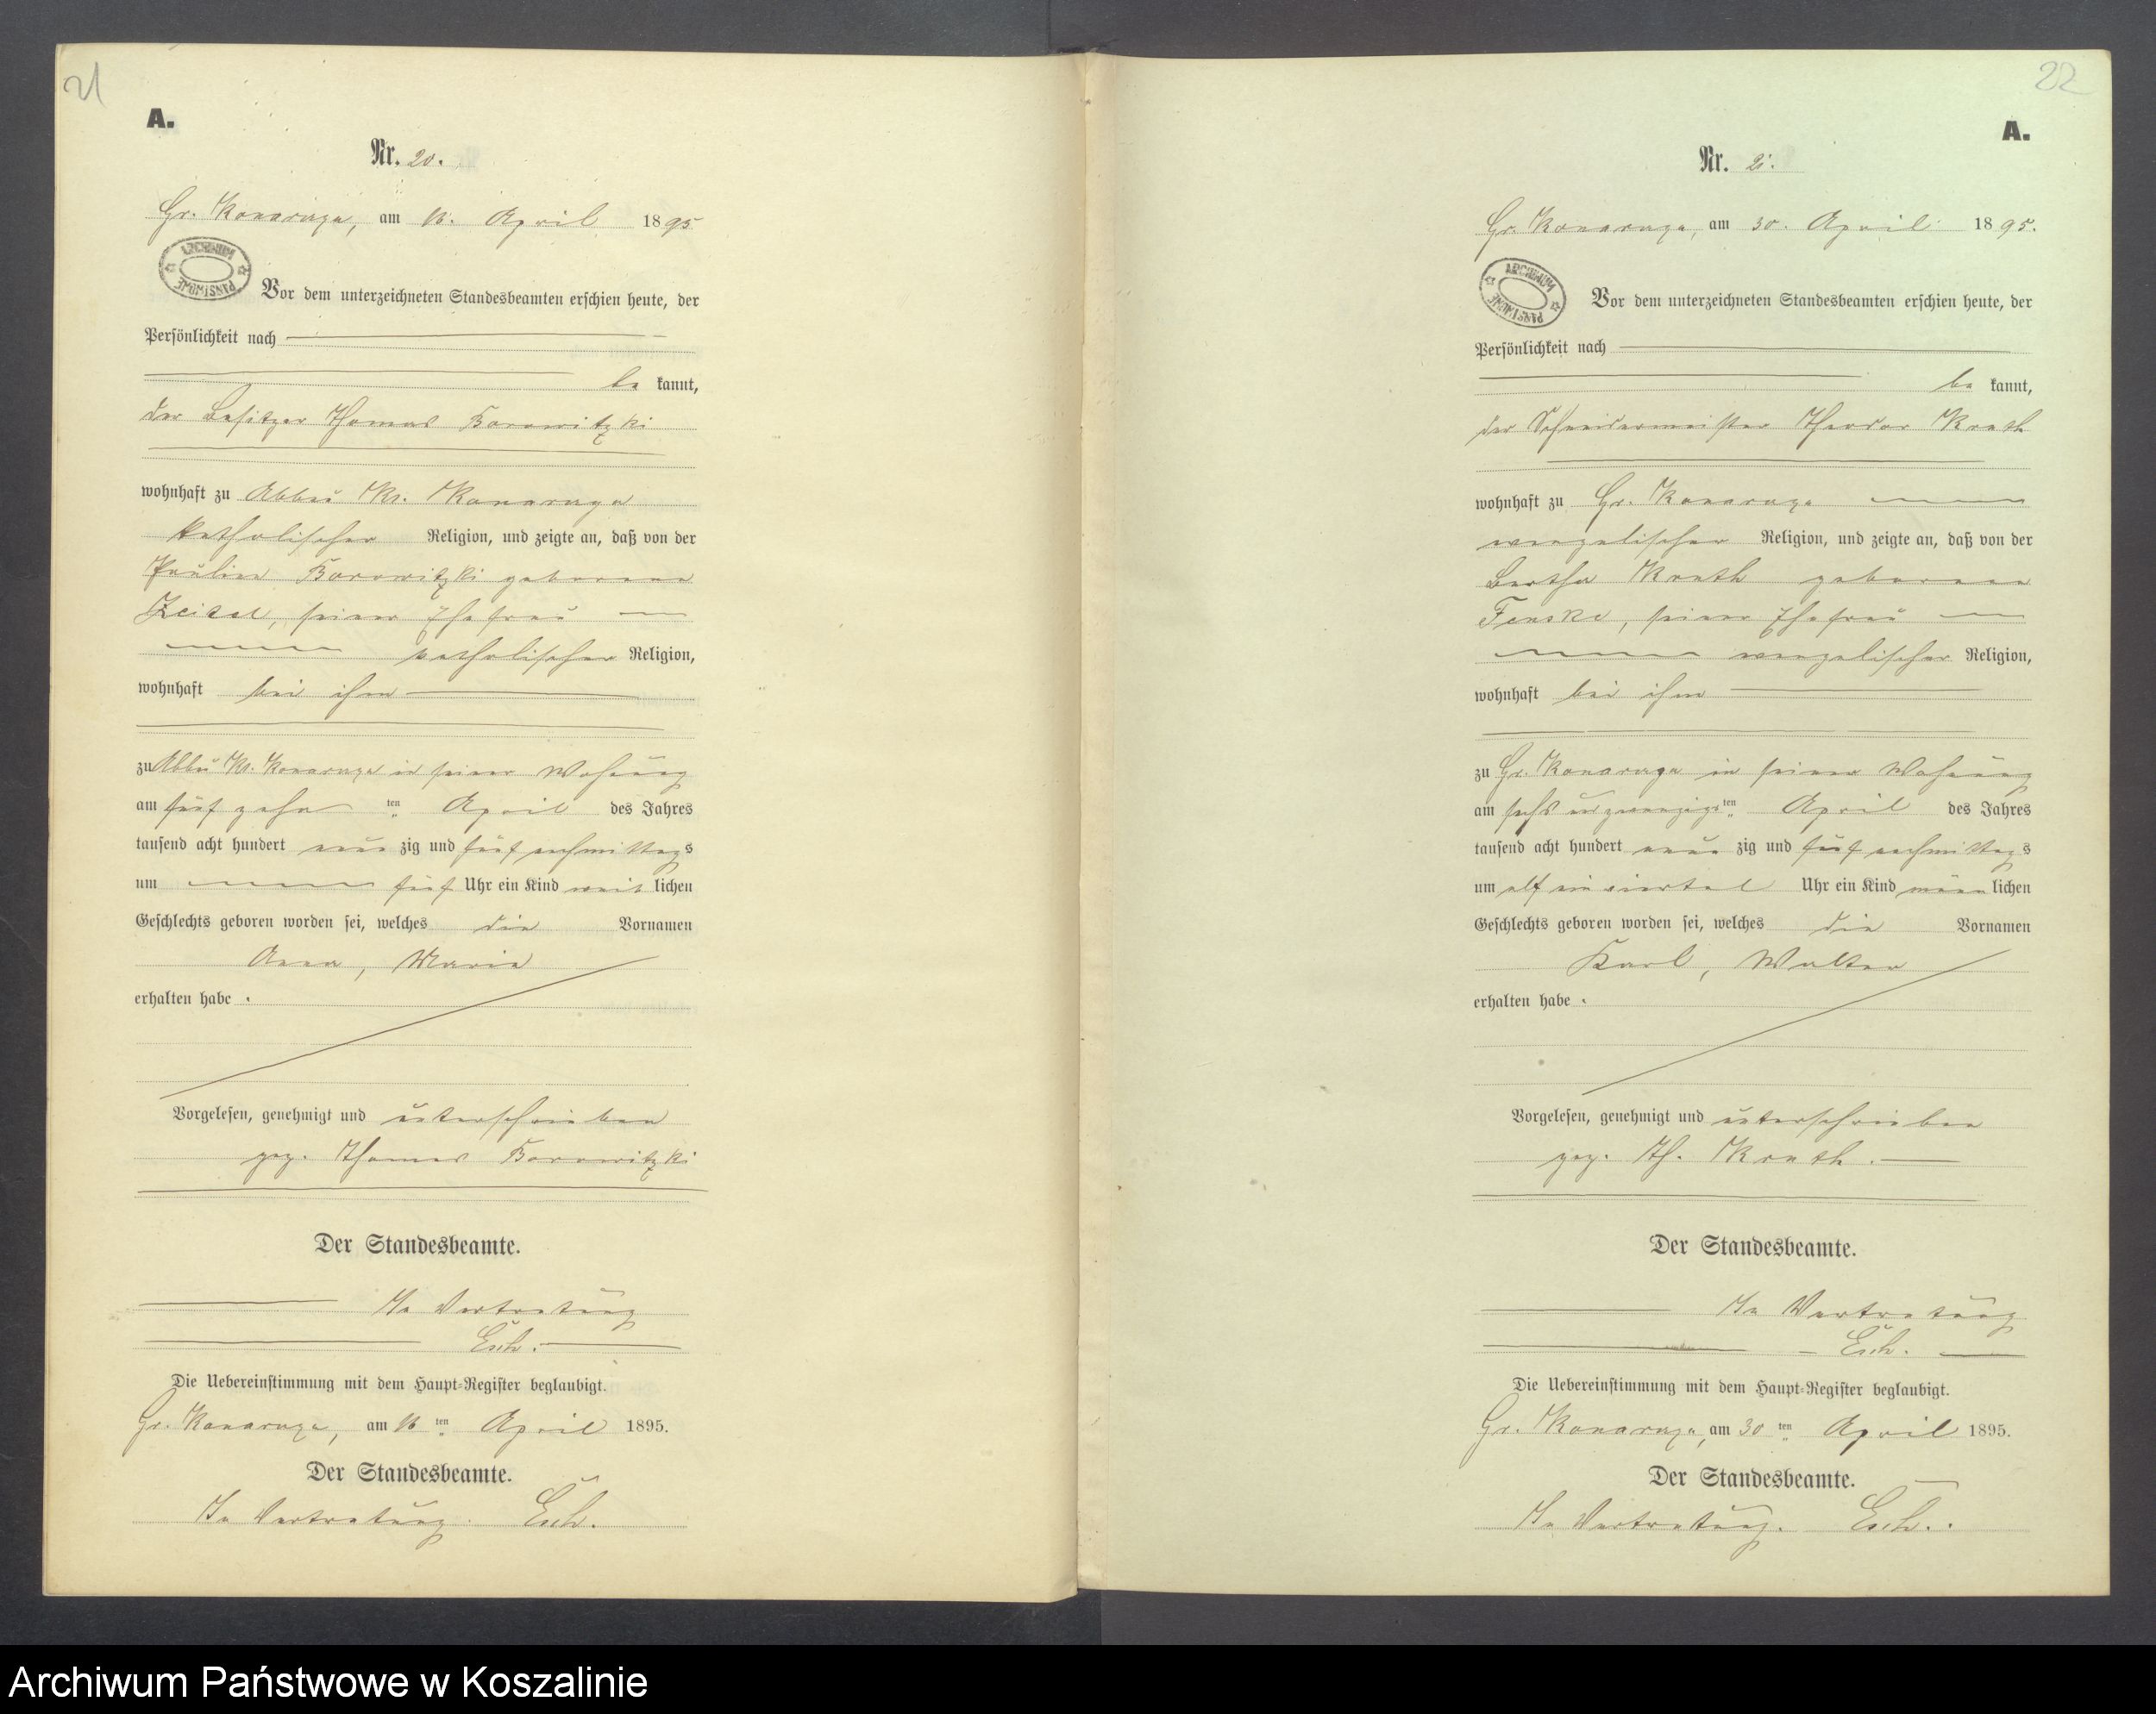 21
A.
Nr. 20.
Gr. Konarczyn, am 16. April 1895
ARCHIWUM PAŃSTWOWE
Vor dem unterzeichneten Standesbeamten erschien heute, der
Persönlichkeit nach
be kannt,
der Besitzer Thomas Borowitzki
wohnhaft zu Abbau Kl. Konarczyn
katholischer Religion, und zeigte an, daß von der
Pauline Borowitzki geborene
seiner Ehefrau
katholischer Religion,
wohnhaft bei ihm
zu Abbau Kl. Konarczyn in seiner Wohnung
am fünfzehn ten April des Jahres
tausend acht hundert neun zig und fünf nachmittags
um fünf Uhr ein Kind weib lichen
Geschlechts geboren worden sei, welches die Vornamen
Anna, Maria
erhalten habe.
Vorgelesen, genehmigt und unterschrieben
gez. Thomas Borowitzki
Der Standesbeamte.
In Vertretung
Esch.
Die Uebereinstimmung mit dem Haupt-Register beglaubigt.
Gr. Konarczyn, am 16 ten April 1895.
Der Standesbeamte.
In Vertretung. Esch.
22
A.
Nr. 21.
Gr. Konarczyn, am 30. April 1895.
ARCHIWUM PAŃSTWOWE
Vor dem unterzeichneten Standesbeamten erschien heute, der
Persönlichkeit nach
be kannt,
der Schneidermeister Theodor Kroth
wohnhaft zu Gr. Konarczyn
evangelischer Religion, und zeigte an, daß von der
Bertha Kroth geborene
Fenske, seiner Ehefrau
evangelischer Religion,
wohnhaft bei ihm
zu Gr. Konarczyn in seiner Wohnung
am sechsundzwanzigs ten April des Jahres
tausend acht hundert neun zig und fünf nachmittags
um elf ein viertel Uhr ein Kind männ lichen
Geschlechts geboren worden sei, welches die Vornamen
Karl, Walter
erhalten habe.
Vorgelesen, genehmigt und unterschrieben
gez. Th. Kroth.
Der Standesbeamte.
In Vertretung
Esch.
Die Uebereinstimmung mit dem Haupt-Register beglaubigt.
Gr. Konarczyn, am 30 ten April 1895.
Der Standesbeamte.
In Vertretung. Esch.
Archiwum Państwowe w Koszalinie